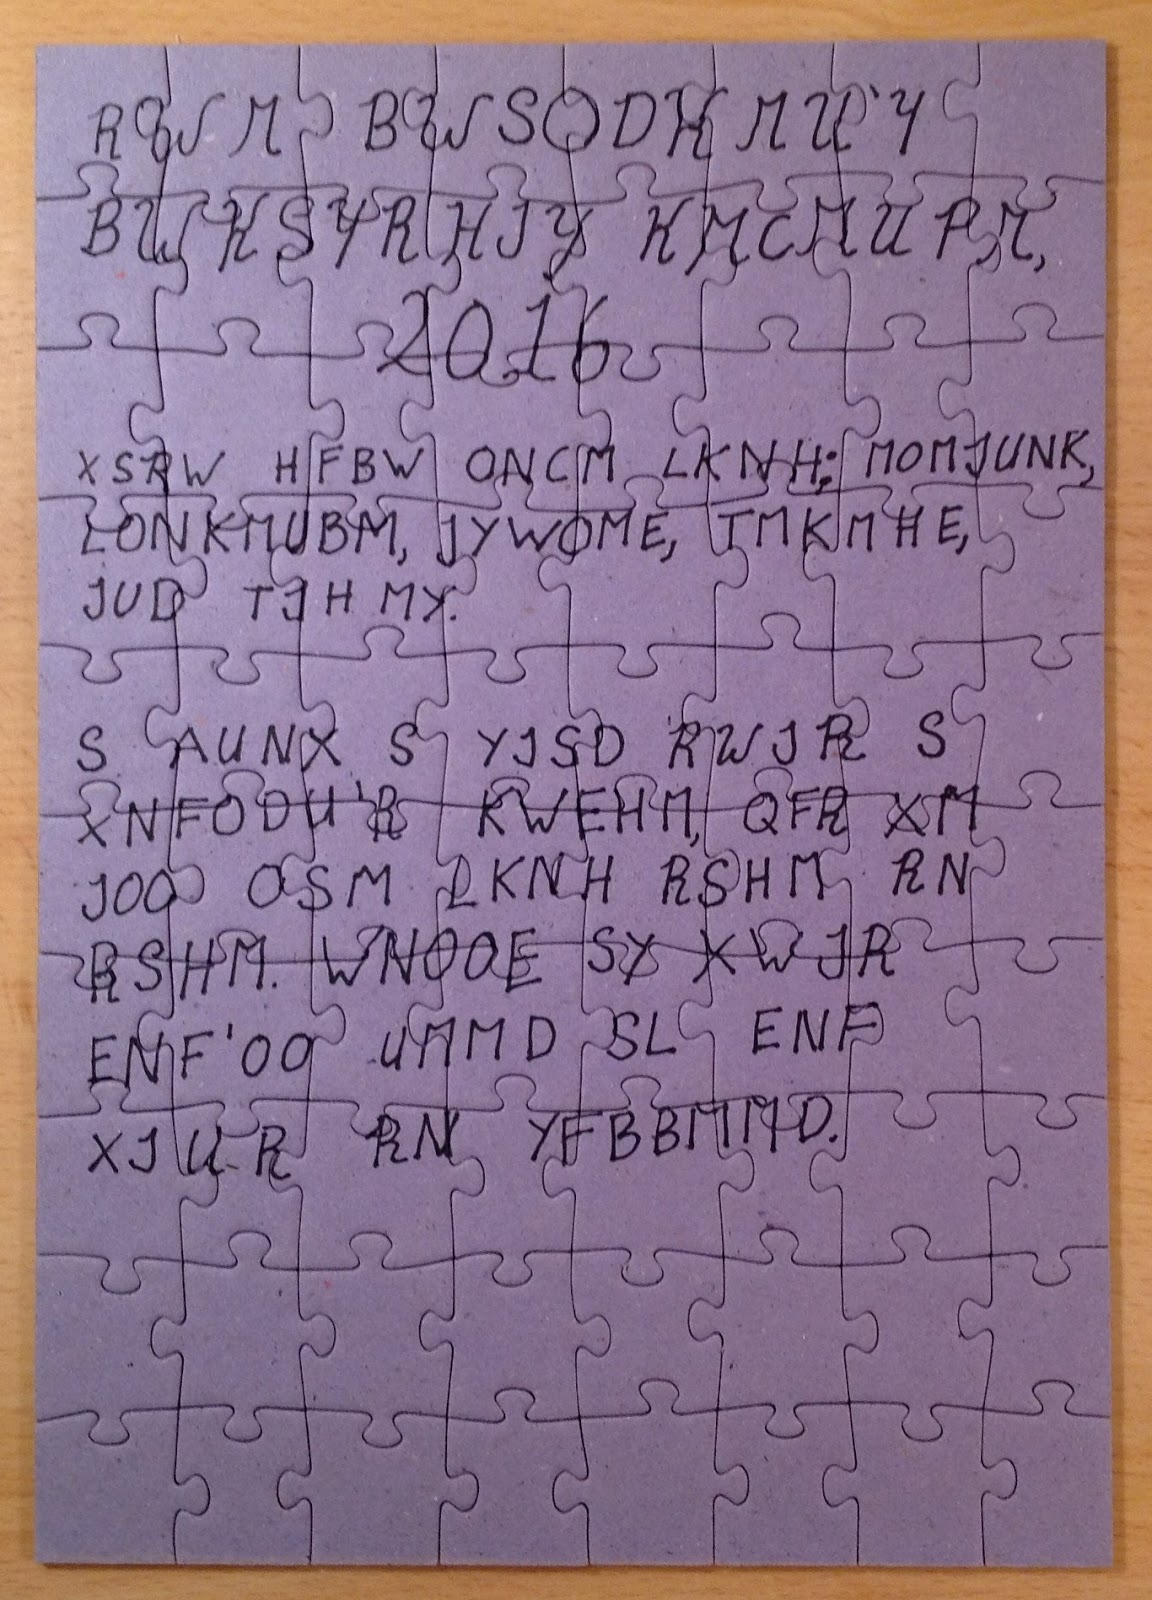 RWM BWSODKMU'Y
BWKSYRHJY KMCMUPM,
2016
XSRW HFBW ONCM LKNH; MOMJUNK,
LONKMUBM, JYWOME, TMKMHE,
JUD TJHMY.
S AUNX S YJSD RWJR S
XNFODU'R KWEHM, QFR XM
JOO OSM LKNH RSHM RN
RSHM. WNOOE SY XWJR
ENF'OO UMMD SL ENF
XJUR RN YFBBMMD.